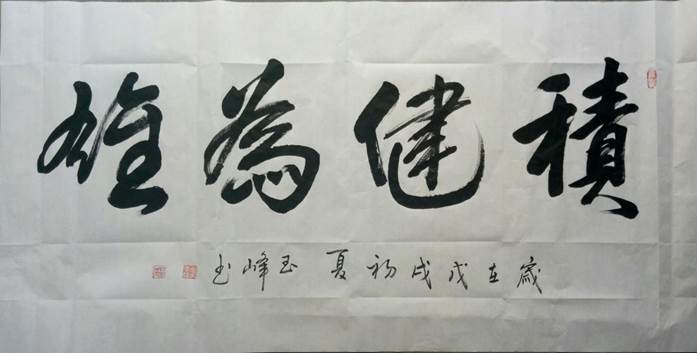 積健為雄
歲在戊戌初夏玉峰书